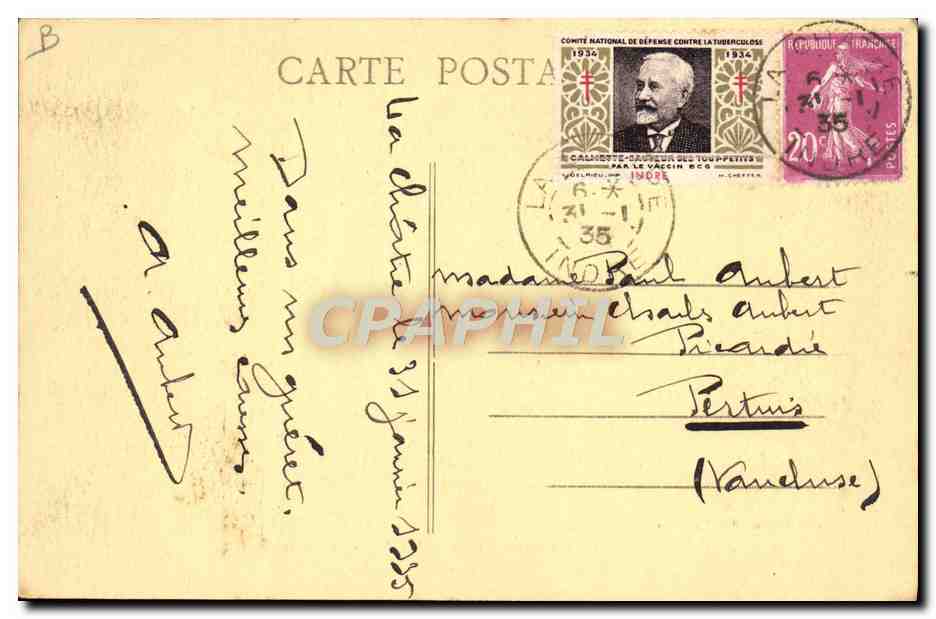 B
CARTE POSTA
COMITÉ NATIONAL DE DÉFENSE CONTRE LA TUBERCULOSE
1934 1934
CALMETTE-SAUVEUR DES TOUT-PETITS
PAR LE VACCIN BCG
INDRE
H. CHEFFER
RÉPUBLIQUE FRANÇAISE
20c
POSTES
LA CHATRE
6 *
31 -1
35
INDRE
6 *
31 -1
35
INDRE
La Châtre le 31 janvier 1935
Dans un guéret,
meilleures caresses.
A. Aubert
madame Paul Aubert
monsieur Charles Aubert
Picardie
Pertuis
(Vaucluse)
CPAPHIL